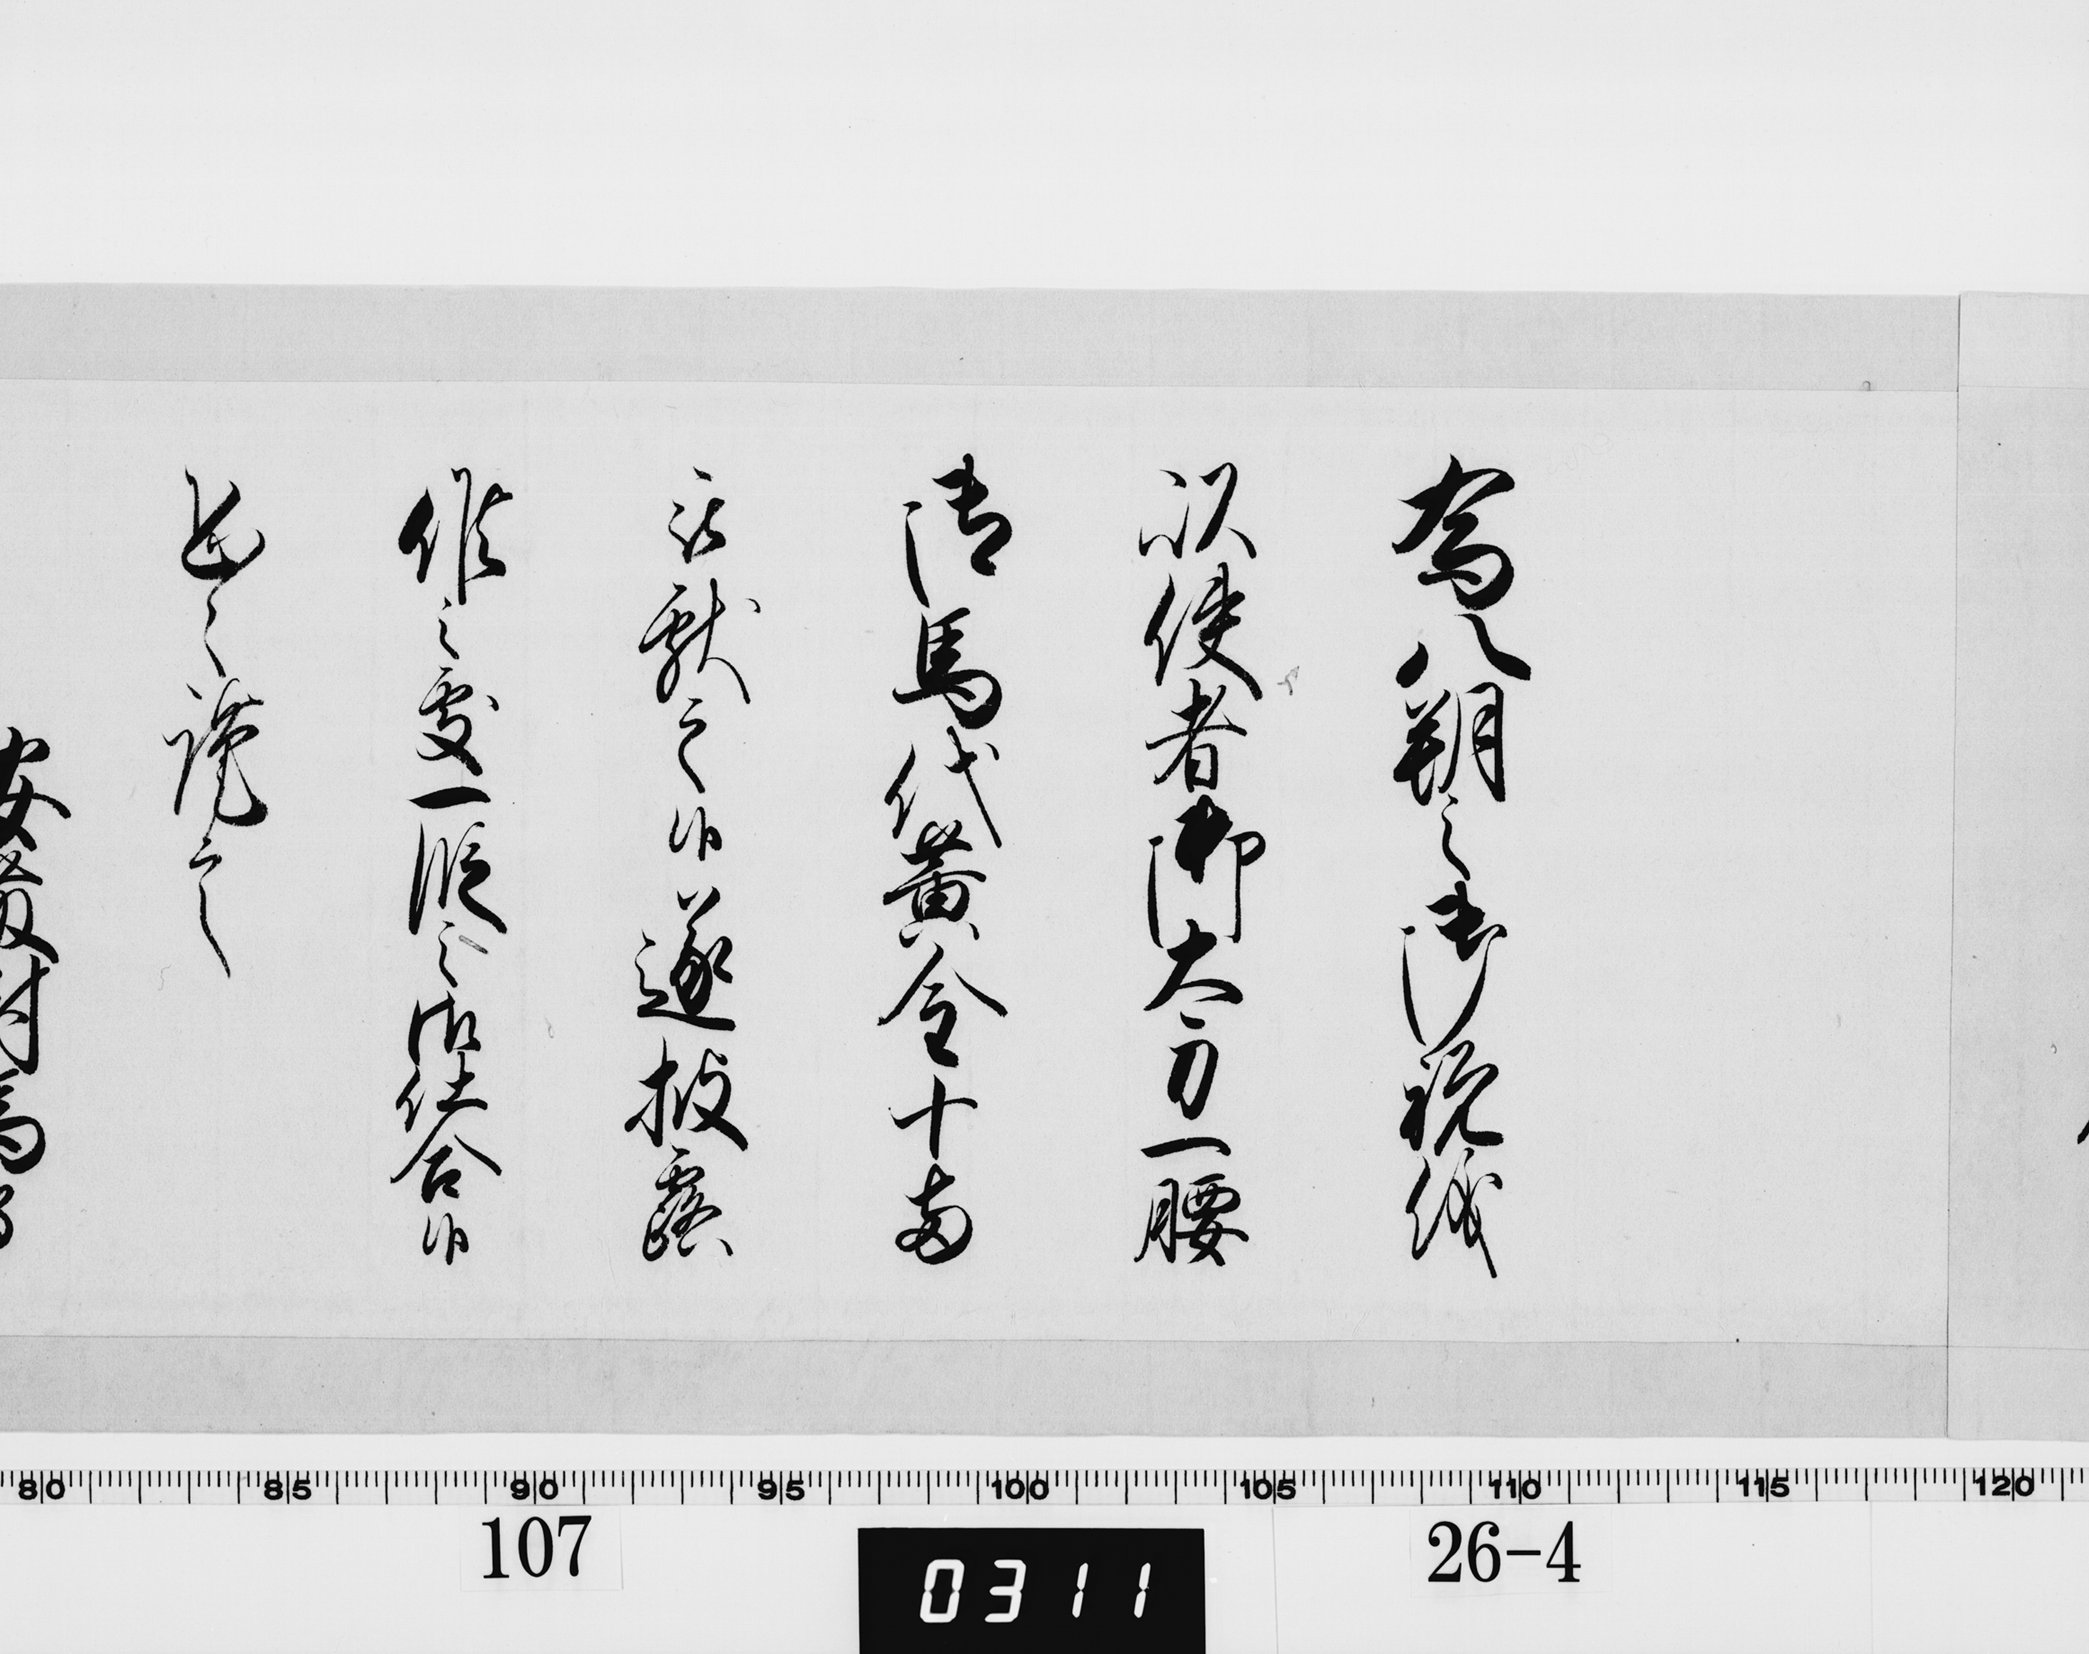 為八朔之御祝儀
以使者御太刀一腰
御馬代黄金十両
被献之候遂披露
候之處一段之御仕合候
恐々謹言
安藤対馬守
80 85 90 95 100 105 110 115 120
107
0311
26-4